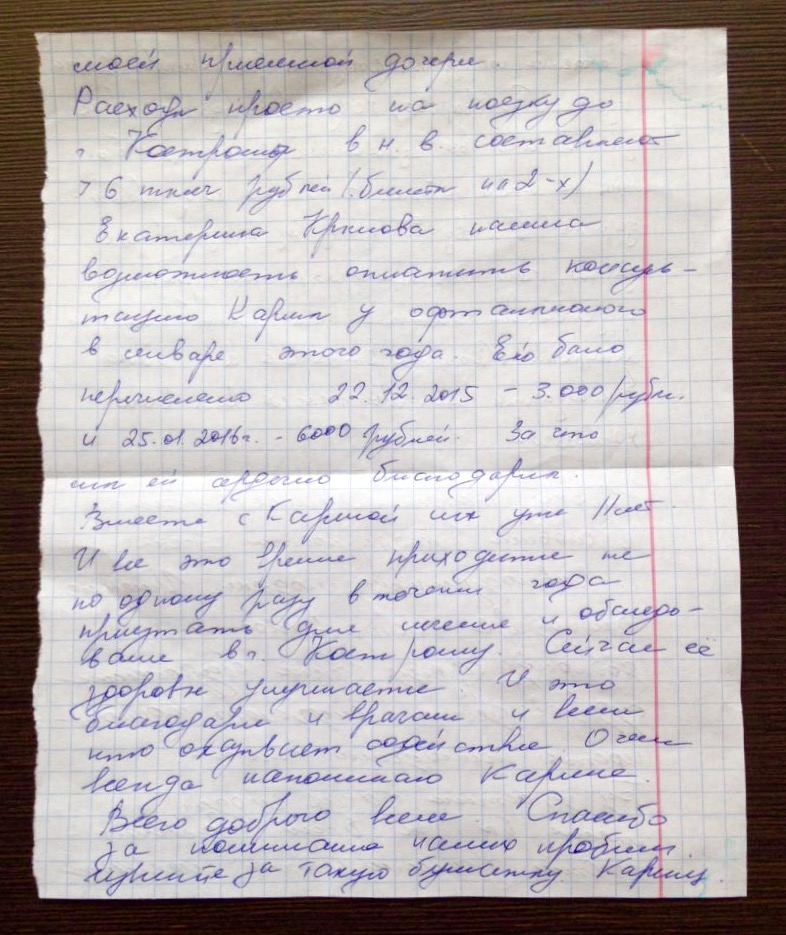 моей приемной дочери.
Расходы просто на поездку до
г Костромы в н. в. составляют
> 6 тысяч рублей (билеты на 2-х)
Екатерина Крылова нашла
возможность оплатить консуль-
тацию Карины у офтальмолога
в январе этого года. Ею было
перечислено 22.12.2015 - 3.000 рубл.
и 25.01.2016г. - 6000 рублей. За что
мы ей сердечно благодарны.
Вместе с Кариной мы уже 11 лет.
И все это время приходится не
по одному разу в течении года
приезжать для лечения и обследо-
вания в г. Кострому. Сейчас её
здоровье улучшается. И это
благодаря и врачам и всем
кто оказывает содействие. О чем
всегда напоминаю Карине.
Всего доброго всем. Спасибо
за понимание наших проблем.
за такую бумажку.